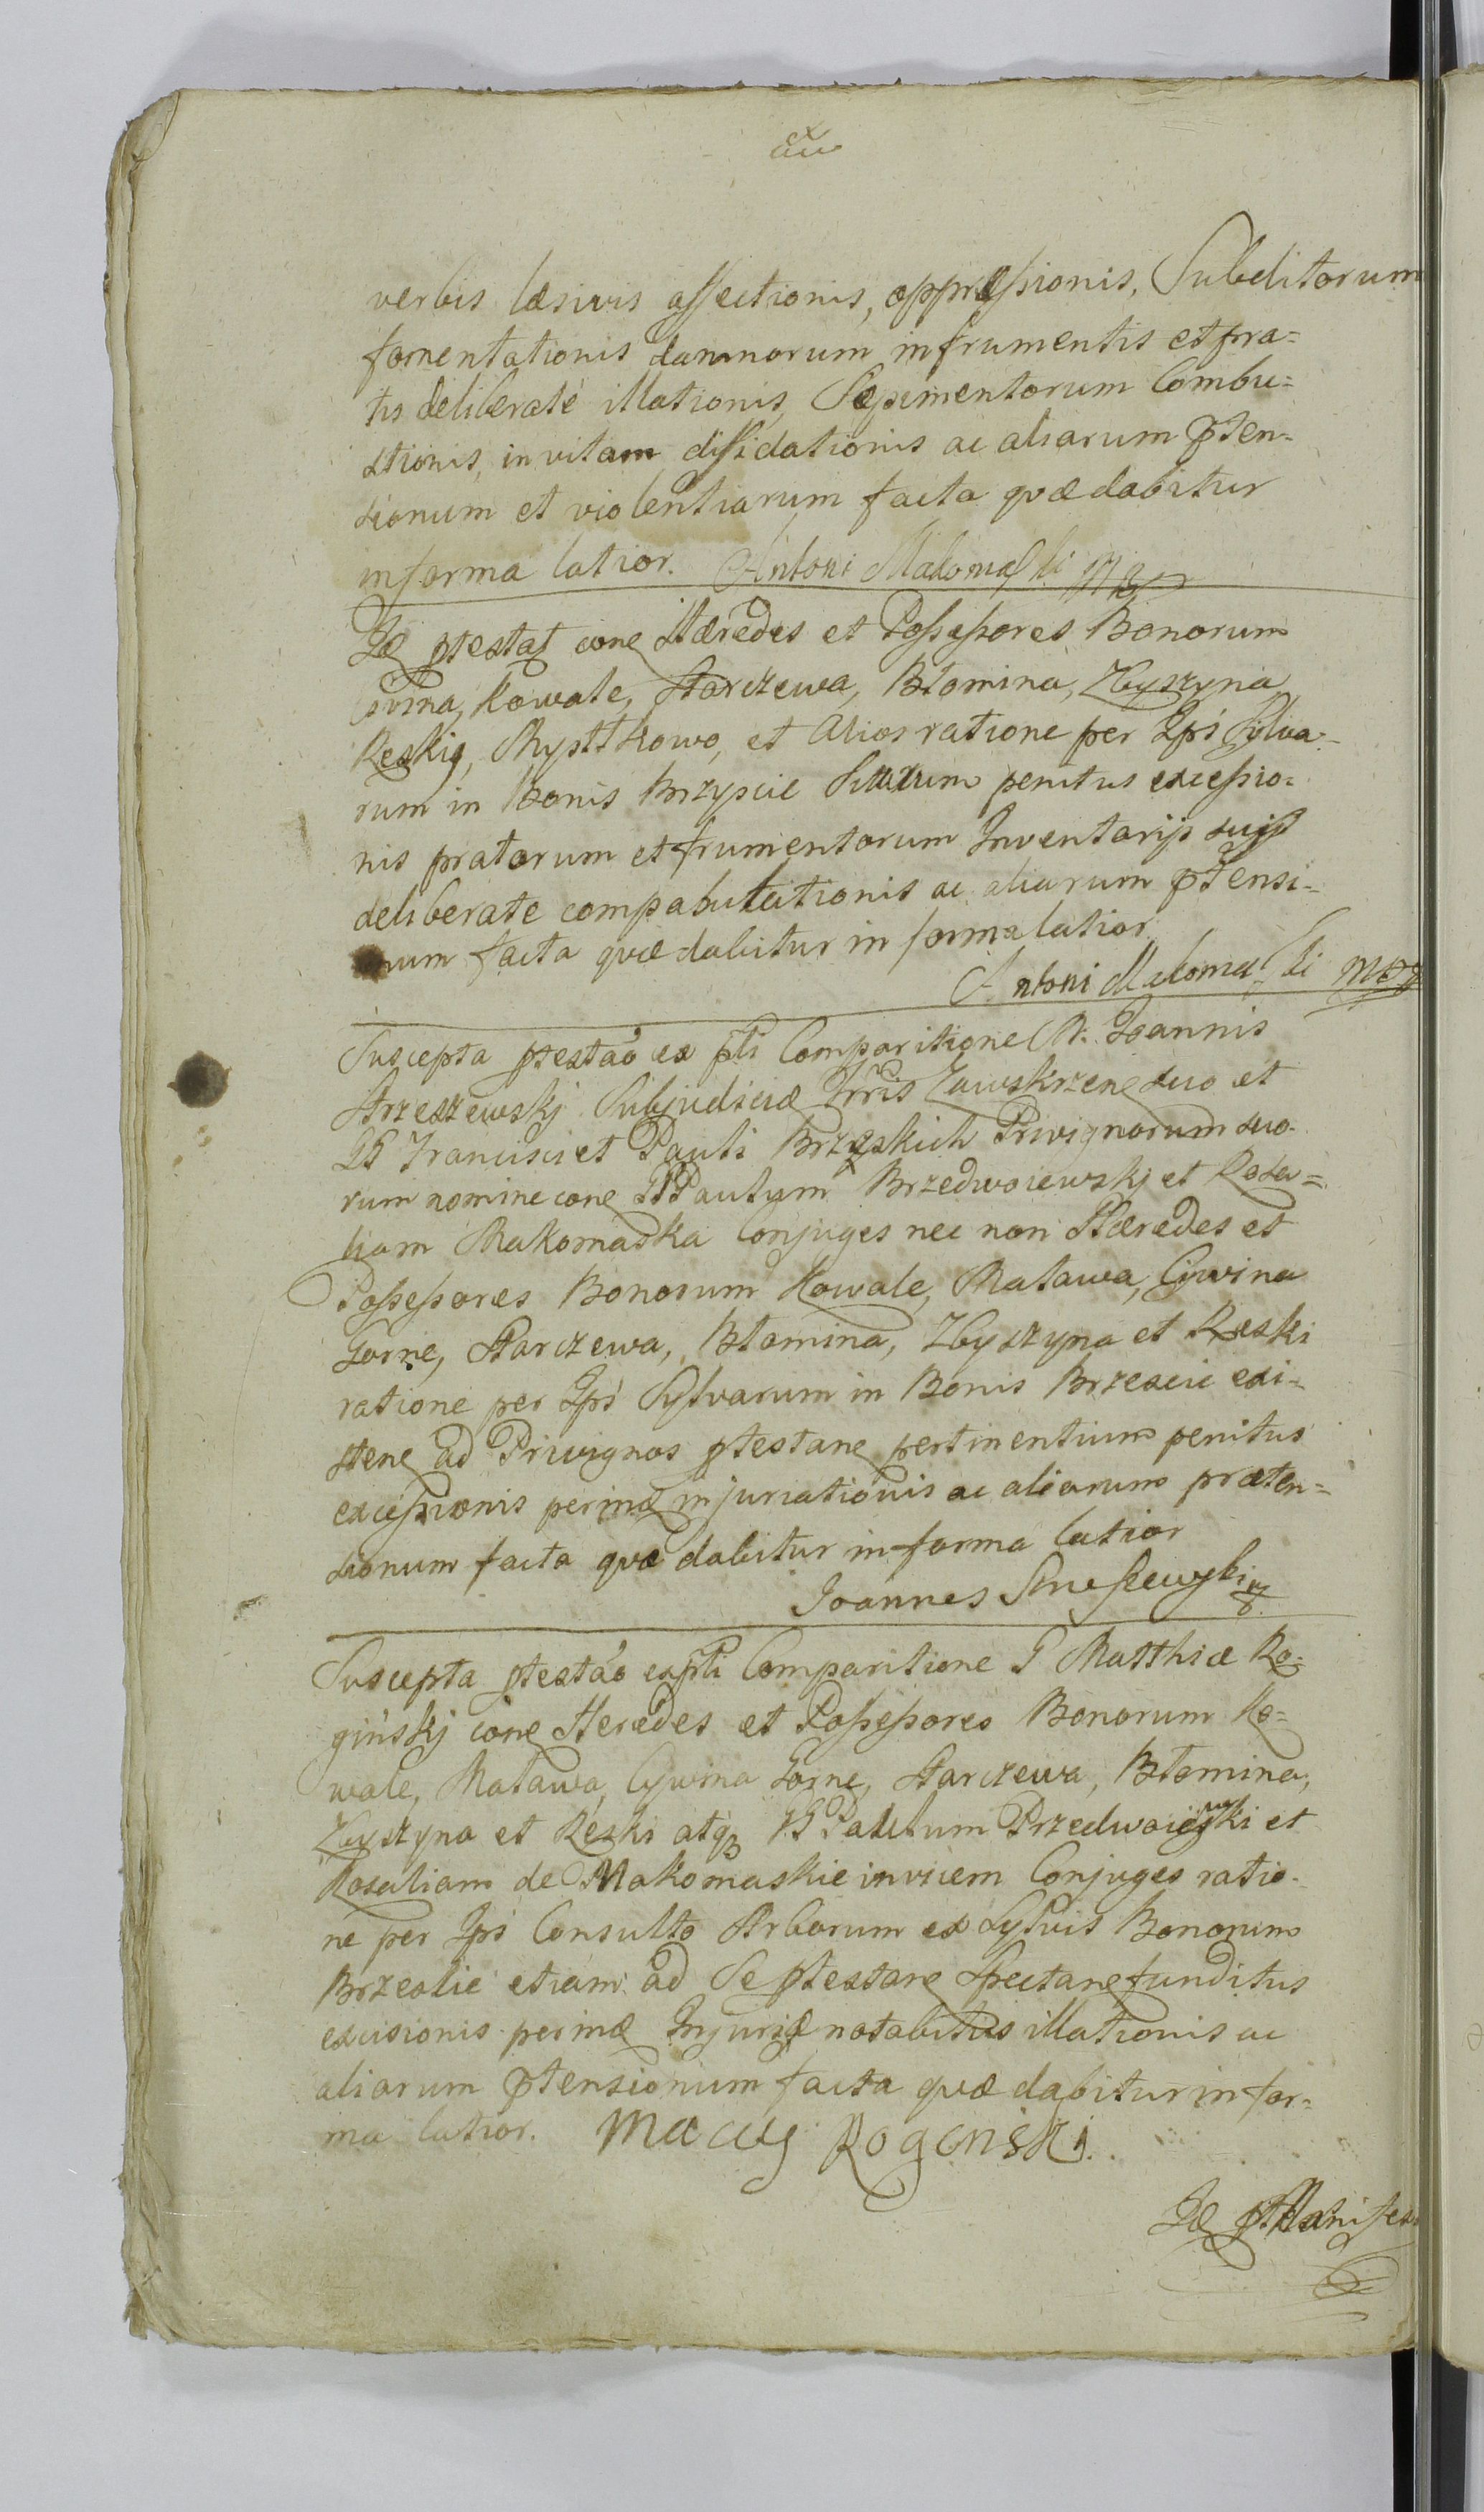 verbis læsivis affectionis, oppressionis, Subditorum
fomentationis damnorum in frumentis et pra=
tis deliberatè illationis, Sepimentorum Combu=
stionis, in vitam diffidationis ac aliarum ptten=
sionum et violentiarum facta quæ dabitur
in forma latior. Antoni Makomaski mp
Id ptestat cone Hæredes et Possessores Bonorum
Kowale, Starczewa, Błomina, Zbyszyna
Reskie, Mysttkowo, et Alios ratione per Ipś Sylva=
rum in Bonis Brzyscie penitus excessio=
nis pratorum et frumentorum Inventarijs suis
deliberate compabulationis ac aliarum ptensi=
num facta quæ dabitur in forma latior
Antoni Makomaski mp
Suscepta ptestão ex pti Comparitione M. Joannis
Strzeszewskj Subjudicis Trris Zawskrzen suo et
GG Francisci et Pauli Brzeskich Privignorum suo=
rum nomine cone GG Paulum Brzedwoiewskj et Rosa=
liam Makomaska Conjuges nec non Hæredes et
Possessores Bonorum Kowale, Malawa, Cywina
Gorne, Starczewa, Błomina, Zbyszyna et Reski
ratione per Ipś Sylvarum in Bonis Brzescie exi=
sten ad Privignos ptestane pertinentium penitus
excessionis perinde injuriationis ac aliarum præten=
sionum facta quæ dabitur in forma latior
Joannes Strzeszewski mp
Suscepta ptestão ex pti Comparitione G Matthiæ Ro=
gińskj cone Heredes et Possessores Bonorum Ko=
wale, Malawa, Cywina Gorne, Starczewa, Błomina,
Zbyszyna et Reski atq GG Paulum Przedwoiewski et
Rosaliam de Makomaskie invicem Conjuges ratio=
ne per Ipś Consulto Arborum ex Sylvis Bonorum
Brzeslie etiam ad Se ptestane Spectane funditus
excisionis perinde Injuriæ notabilis illationis ac
aliarum ptensionum facta quæ dabitur in for=
ma latior. Maciey Roginski.
Id Manifes